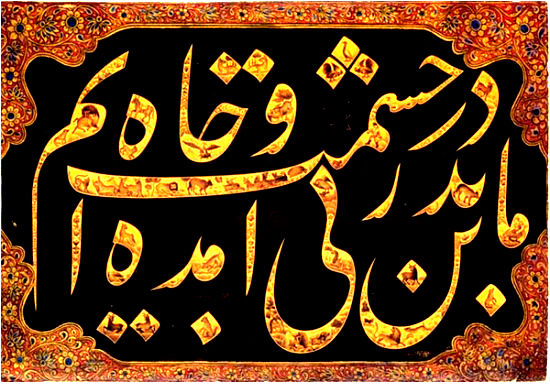 ما بدین در نه پی حشمت و جاه امده ایم